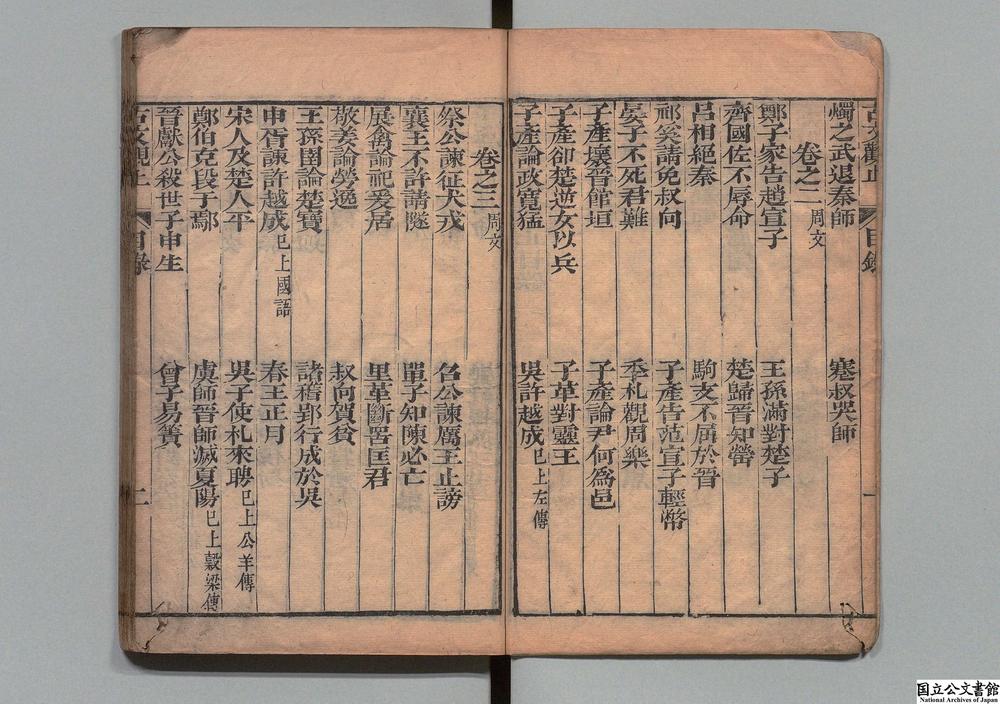 古文觀止 目錄 一
燭之武退秦師 蹇叔哭師
卷之二 周文
鄭子家告趙宣子 王孫滿對楚子
齊國佐不辱命 楚歸晉知罃
呂相絕秦 駒支不屈於晉
祁奚請免叔向 子產告范宣子輕幣
晏子不死君難 季札觀周樂
子產壞晉館垣 子產論尹何爲邑
子產卻楚逆女以兵 子革對靈王
子產論政寬猛 吳許越成 已上左傳
卷之三 周文
祭公諫征犬戎 召公諫厲王止謗
襄王不許請隧 單子知陳必亡
展禽論祀爰居 里革斷罟匡君
敬姜論勞逸 叔向賀貧
王孫圉論楚寶 諸稽郢行成於吳
申胥諫許越成 已上國語 春王正月
宋人及楚人平 吳子使札來聘 已上公羊傳
鄭伯克段于鄢 虞師晉師滅夏陽 已上穀梁傳
晉獻公殺世子申生 曾子易簀
古文觀止 目錄 二
国立公文書館
National Archives of Japan